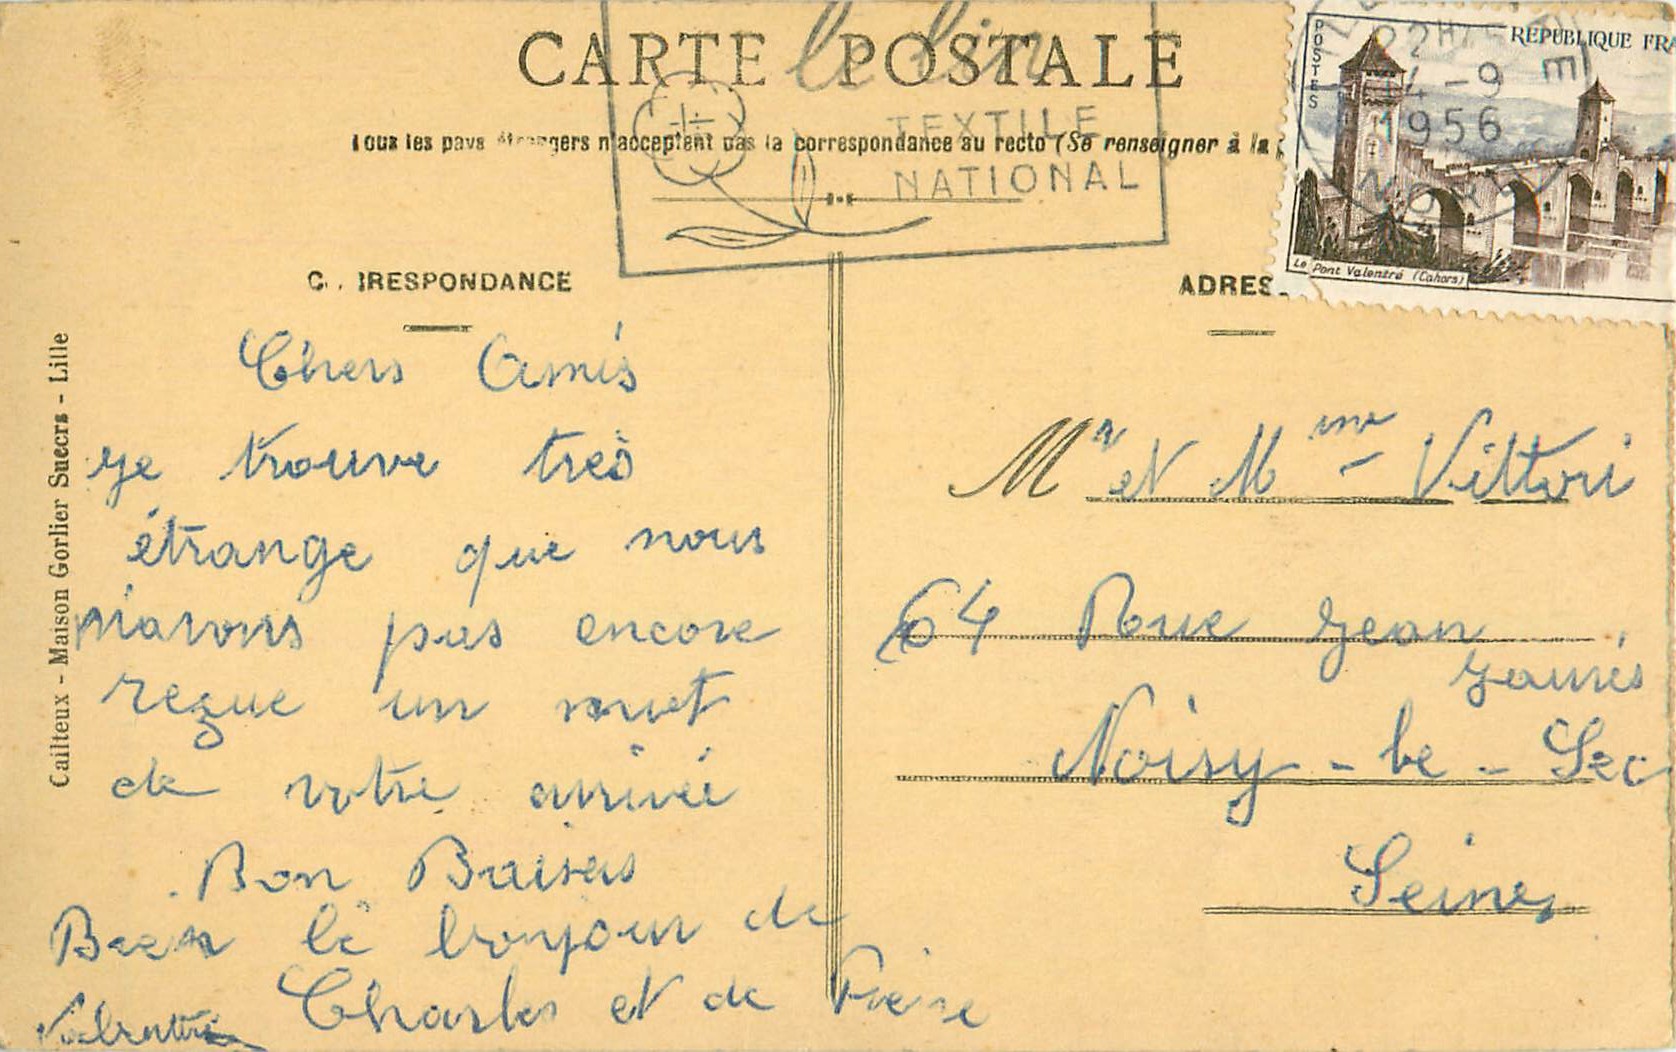 CARTE POSTALE
le lin
TEXTILE
NATIONAL
Tous les pays étrangers n'acceptent pas la correspondance au recto (Se renseigner à la
POSTES
REPUBLIQUE FRA
22H
14-9
1956
NORD
Le Pont Valentré (Cahors)
C. .RESPONDANCE
ADRES
Cailteux - Maison Gorlier Succrs - Lille
Chers Amis
je trouve très
étrange que nous
niavons pas encore
reçue un mot
de votre arrivée
Bon Baisers
Bien le bonjour de
Charles et de Pierre
Mr et Mme Vittori
64 Rue Jean
Jaurés
Noisy - le - Sec
Seine